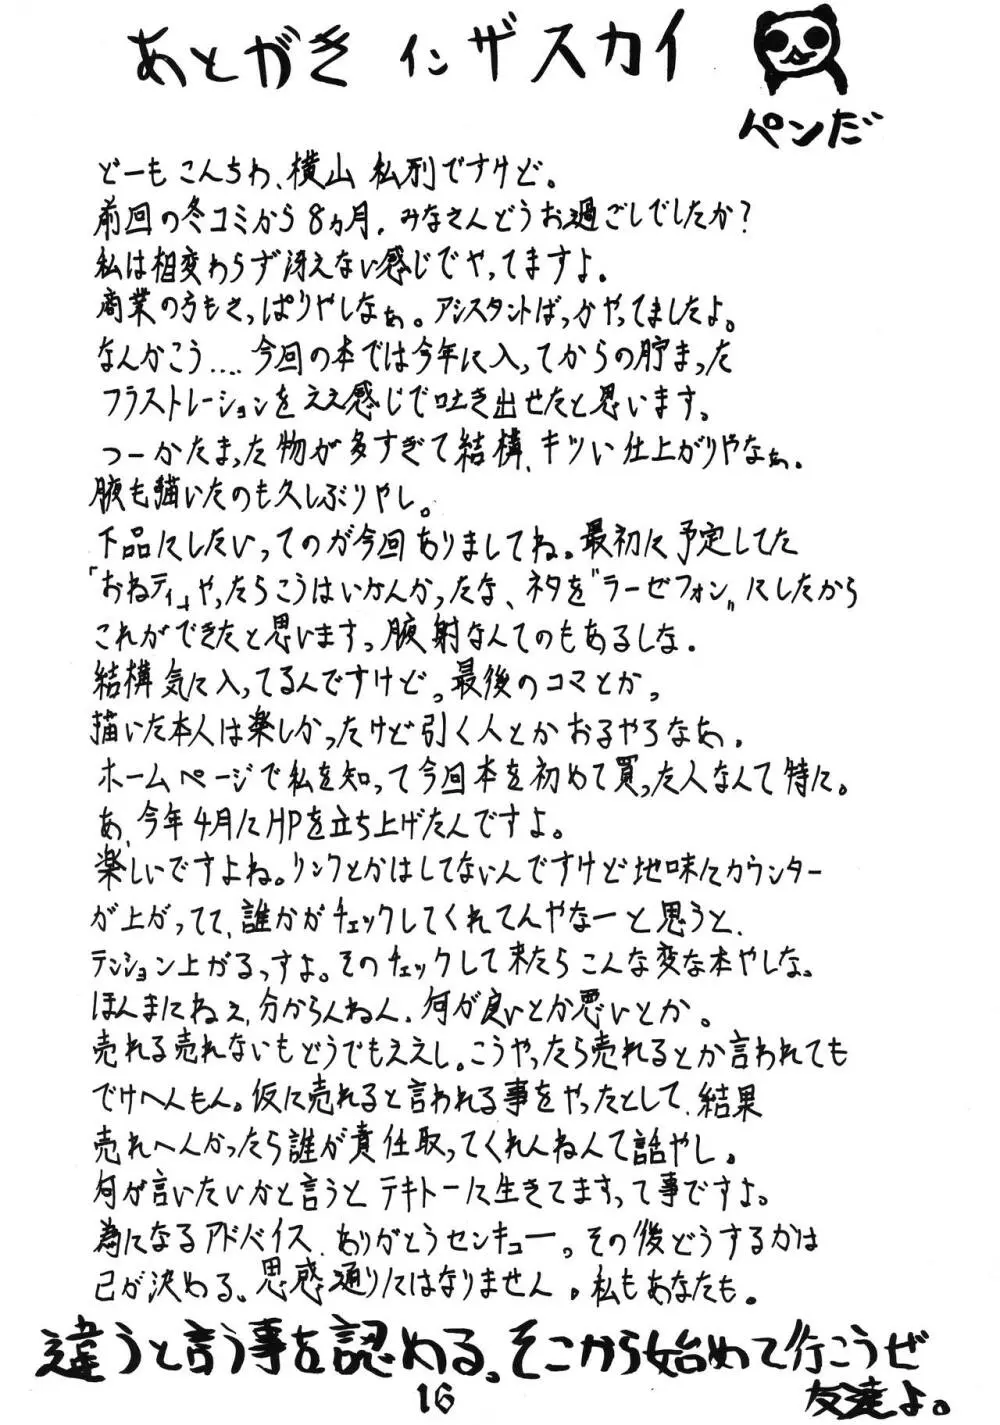 あとがき インザスカイ
ペンだ
どーもこんちわ、横山私刑ですけど。
前回の冬コミから8ヵ月、みなさんどうお過ごしでしたか？
私は相変わらず冴えない感じでやってますよ。
商業の方もさっぱりやしなぁ。アシスタントばっかやってましたよ。
なんかこう‥‥今回の本では今年に入ってからの貯まった
フラストレーションをええ感じで吐き出せたと思います。
つーかたまった物が多すぎて結構、キツい仕上がりやなぁ。
腋も描いたのも久しぶりやし。
下品にしたいってのが今回ありましてね。最初に予定してた
「おねティ」やったらこうはいかんかったな、ネタを〝ラーゼフォン〟にしたから
これができたと思いますっ腋射なんてのもあるしな。
結構気に入ってるんですけどっ最後のコマとかっ
描いた本人は楽しかったけど引く人とかおるやろなあ。
ホームページで私を知って今回本を初めて買った人なんて特に。
あ、今年4月にHPを立ち上げたんですよ。
楽しいですよね。リンクとかはしてないんですけど地味にカウンター
が上がってて、誰かがチェックしてくれてんやなーと思うと、
テンション上がるっすよ。そのチェックして来たらこんな変な本やしな。
ほんまにねぇ、分からんねん、何が良いとか悪いとか。
売れる売れないもどうでもええし。こうやったら売れるとか言われても
でけへんもん。仮に売れると言われる事をやったとして、結果
売れへんかったら誰が責任取ってくれんねんて話やし。
何が言いたいかと言うとテキトーに生きてますって事ですよ。
為になるアドバイス、ありがとうセンキューっその後どうするかは
己が決める。思惑通りにはなりません。私もあなたも。
違うと言う事を認める。そこから始めて行こうぜ
友達よ。
16